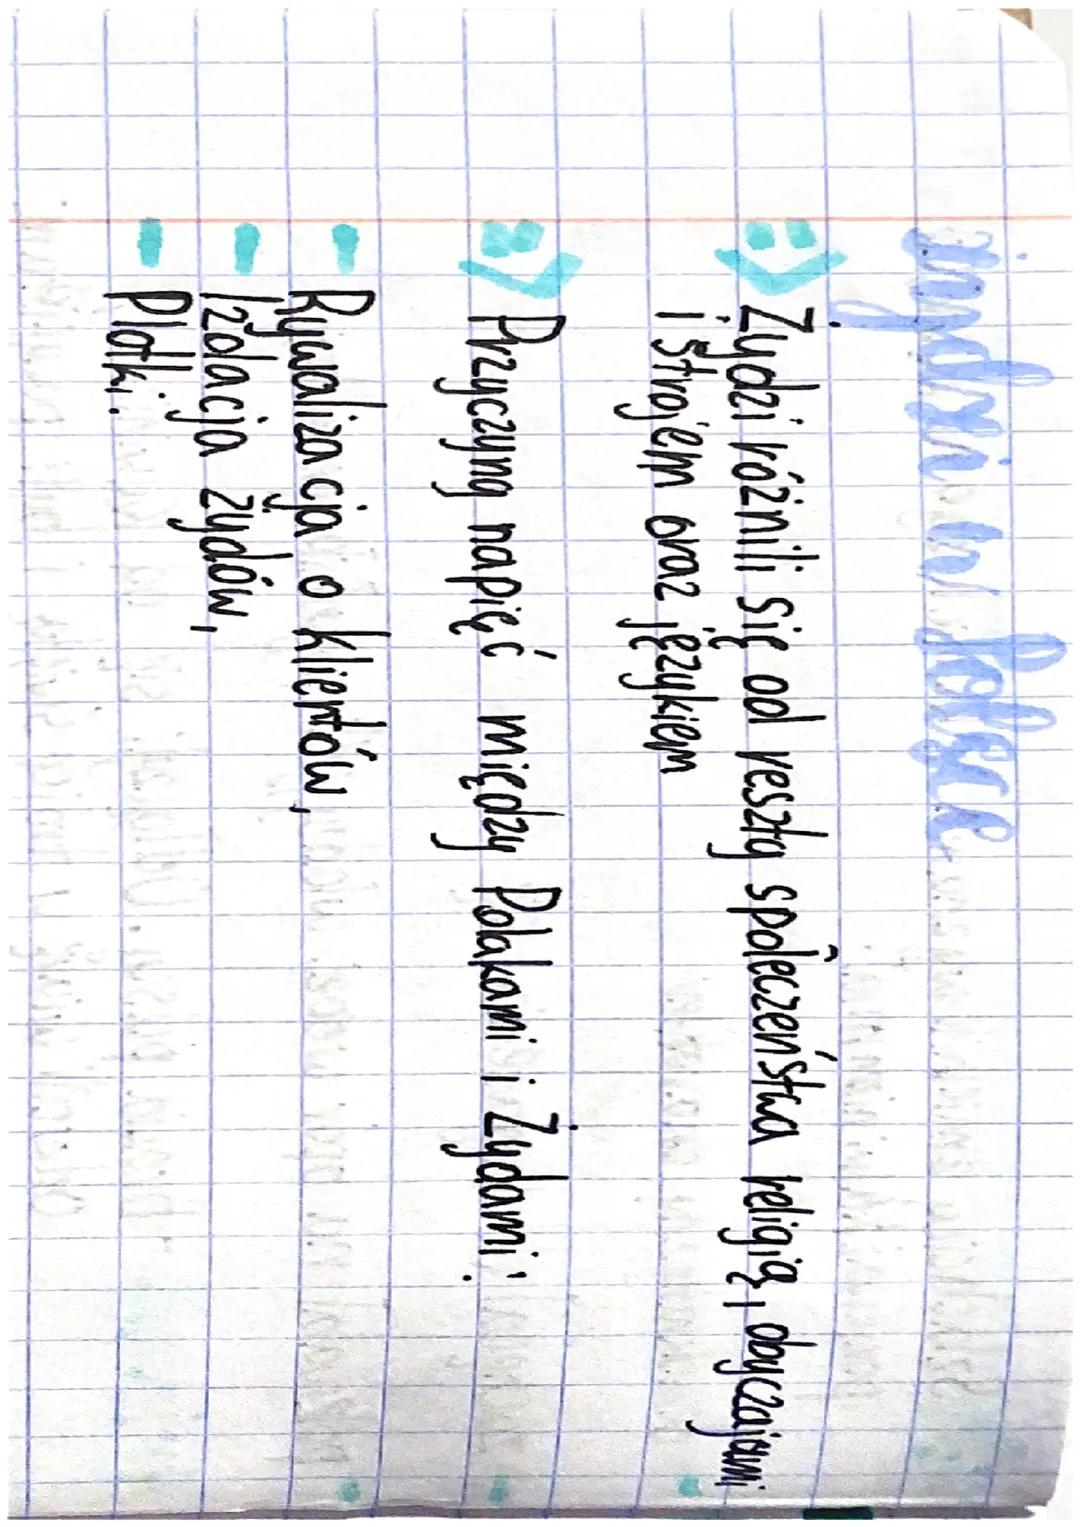 Żydzi w Polsce
=> Żydzi różnili się od reszty społeczeństwa religią, obyczajami
i strojem oraz językiem
=> Przyczyną napięć między Polakami i Żydami:
- Rywalizacja o klientów,
- Izolacja żydów,
- Plotki.